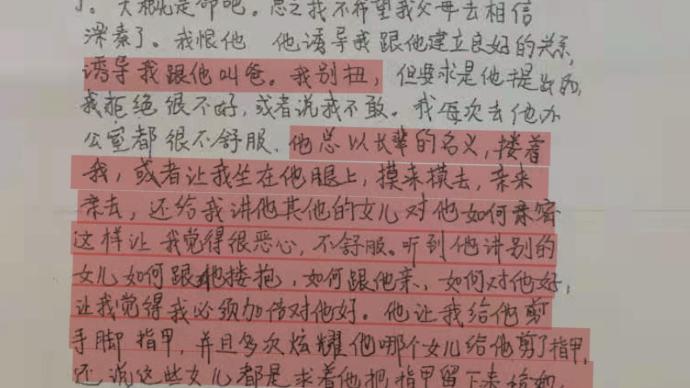 了。大概是命吧。总之我不希望我父母去相信
梁秦了。我恨他 他诱导我跟他建立良好的关系,
诱导我跟他叫爸。我别扭,但要求是他提出的,
我拒绝很不好,或者说我不敢。我每次去他办
公室都很不舒服。他总以长辈的名义,搂着
我,或者让我坐在他腿上,摸来摸去,亲来
亲去,还给我讲他其他的女儿对他如何亲密
这样让我觉得很恶心,不舒服。听到他讲别的
女儿如何跟他搂抱,如何跟他亲,如何对他好,
让我觉得我必须加倍对他好。他让我给他剪
手脚指甲,并且多次炫耀他哪个女儿给他剪了指甲,
还说这些女儿都是求着他把指甲留下来给她